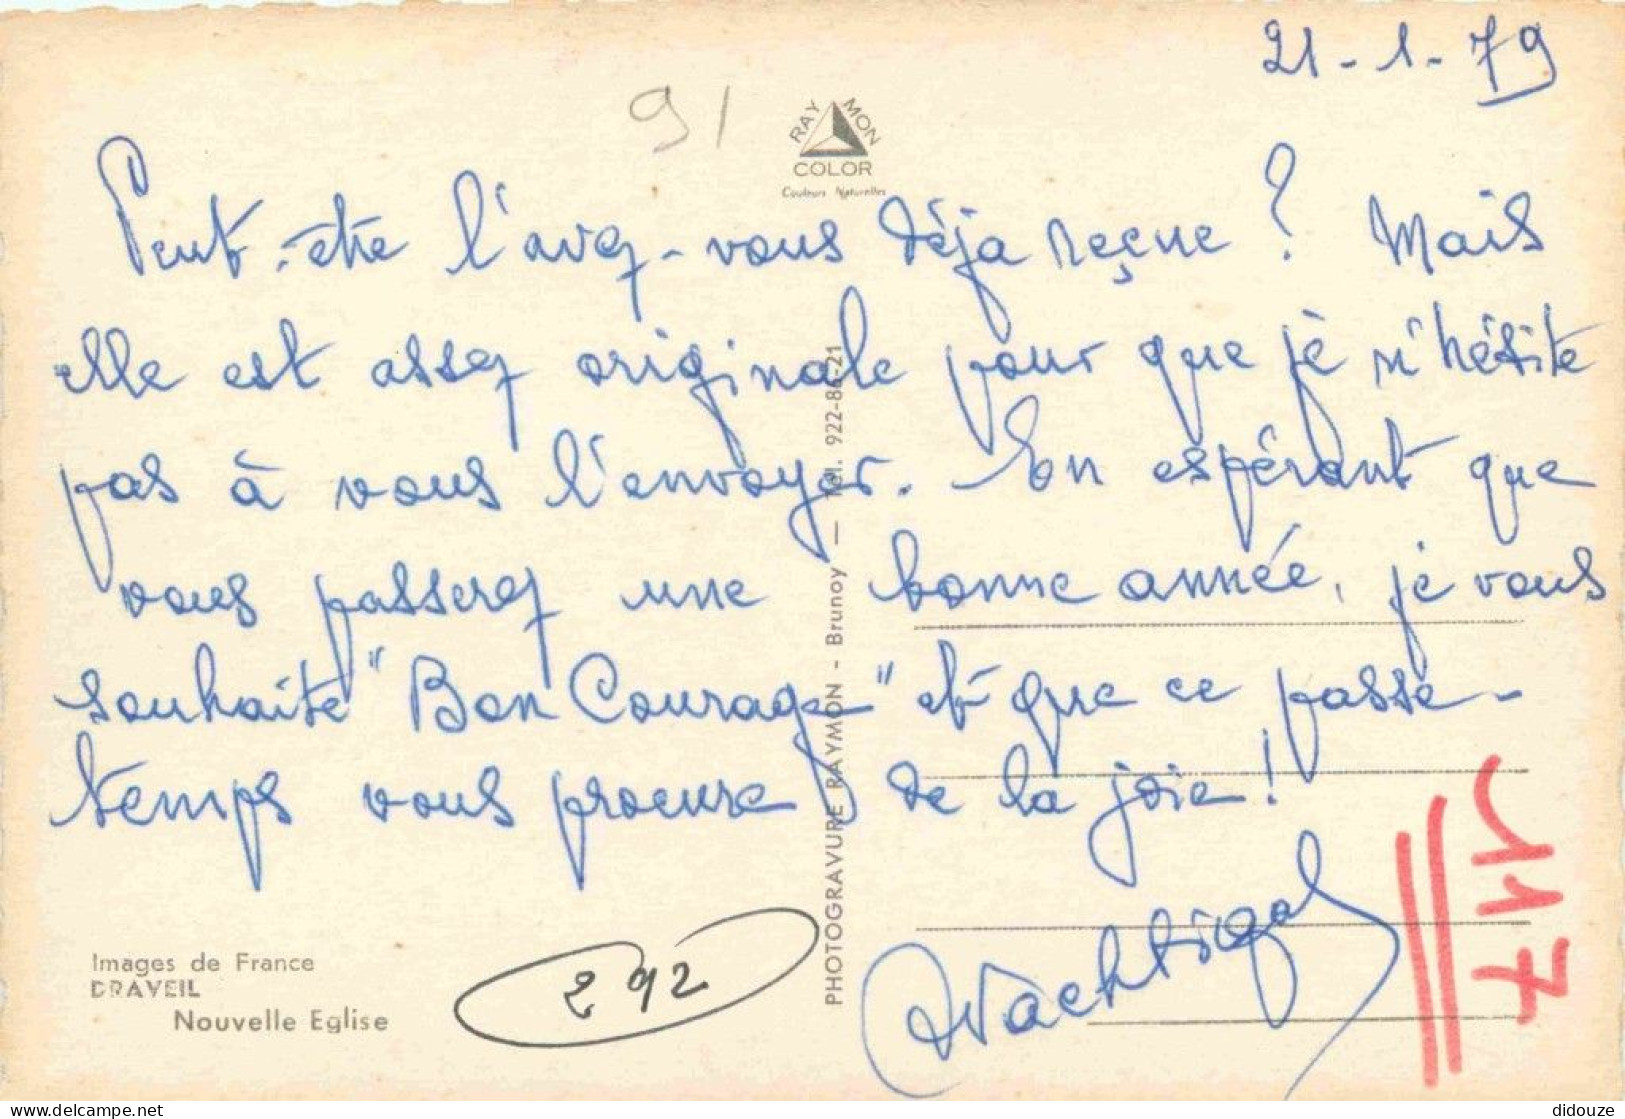 21-1-79
91
RAYMON
COLOR
Couleurs Naturelles
Peut-être l'avez-vous déjà reçue ? Mais
elle est assez originale pour que je n'hésite
pas à vous l'envoyer. En espérant que
vous passerez une bonne année, je vous
souhaite "Bon Courage" et que ce passe-
temps vous procure de la joie !
Nachtigal
117
PHOTOGRAVURE RAYMON - Brunoy — Tél. 922-86-21
Images de France
DRAVEIL
Nouvelle Eglise
292
https://www.delcampe.net
didouze